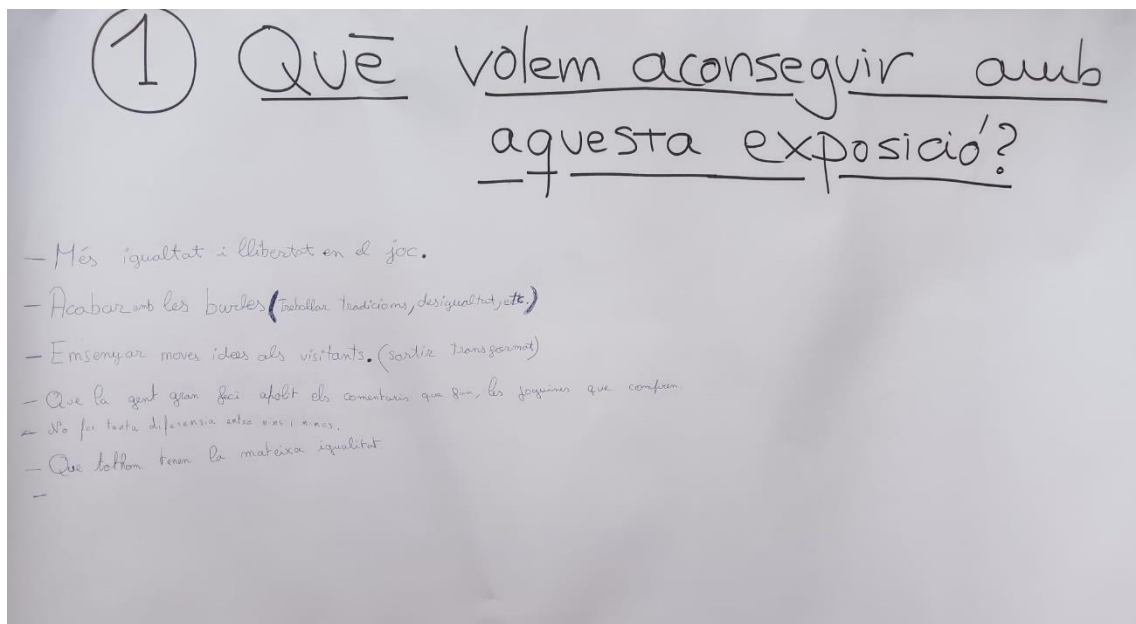 1 Què volem aconseguir amb
aquesta exposició?
- Més igualtat i llibertat en el joc.
- Acabar amb les burles (Treballar tradicions, desigualtat, etc.)
- Ensenyar noves idees als visitants. (sortir transformat)
- Que la gent gran faci els comentaris que fan, les joguines que compren.
- No fer tanta diferensia entre nines i ninos.
- Que tothom tenen la mateixa igualitat.
-